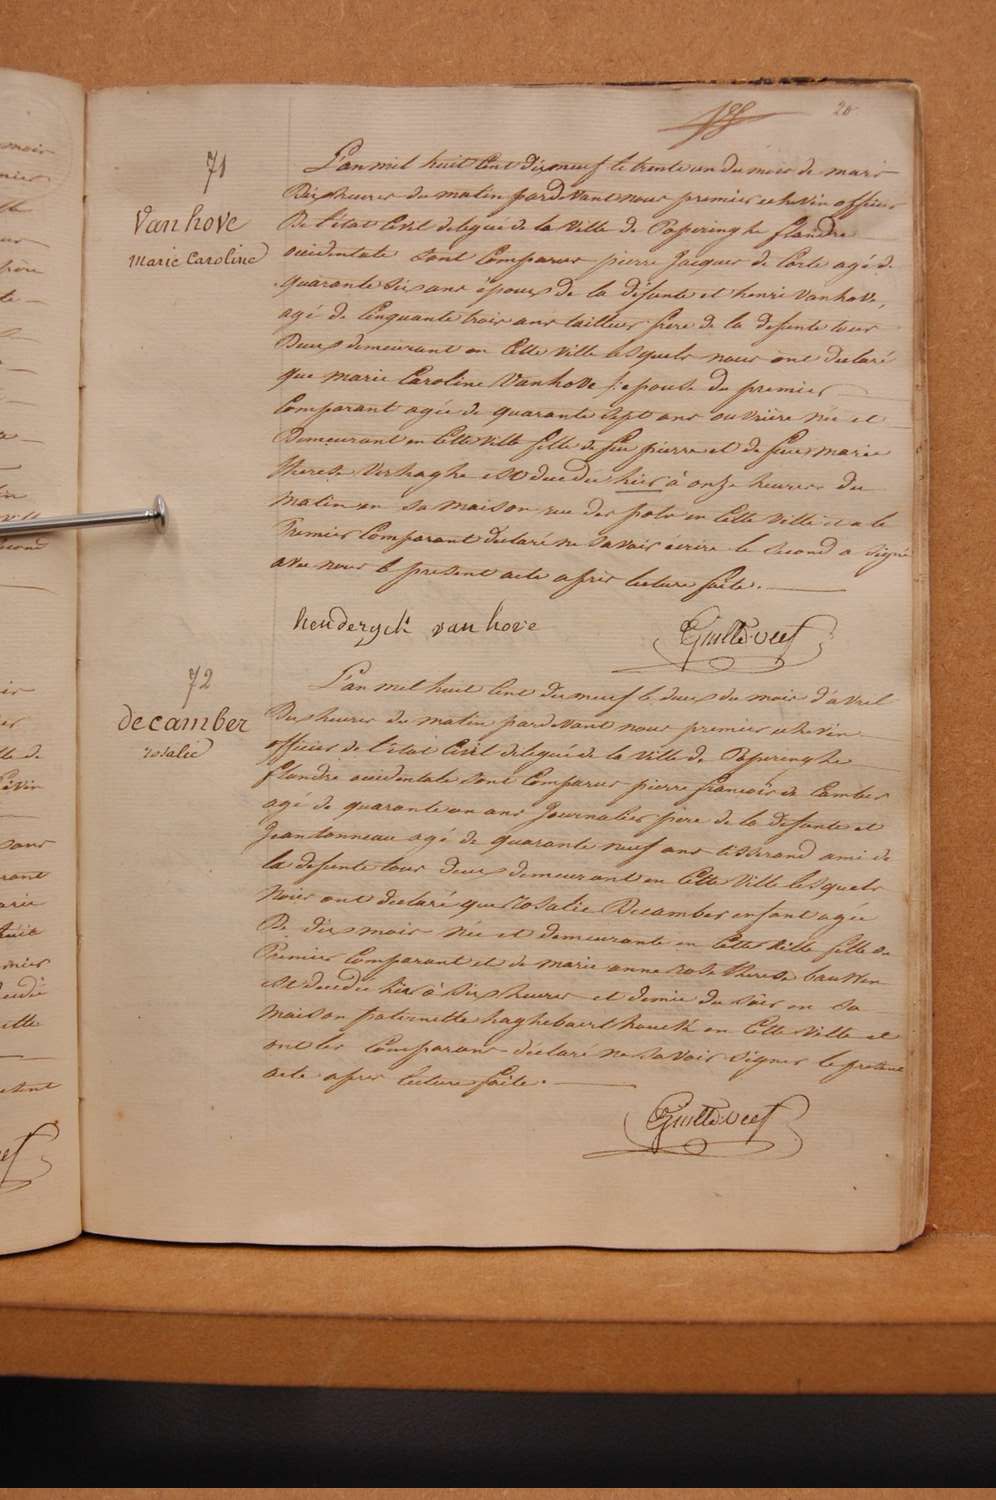 20
71
Vanhove
Marie Caroline
L'an mil huit cent dix neuf le trente un du mois de mars
dix heures du matin pardevant nous premier echevin officier
de l'état civil delegué de la ville de Poperinghe flandre
occidentale sont comparus pierre Jacques de Corte agé de
quarante six ans époux de la défunte et henri vanhove,
agé de cinquante trois ans tailleur frere de la defunte tous
deux demeurant en cette ville lesquels nous ont declaré
que marie Caroline Vanhove epouse du premier
comparant agée de quarante sept ans ouvrière née et
demeurant en cette ville fille de feu pierre et de feue marie
therese verhaghe est decedée hier à onze heures du
matin en sa maison rue des pots en cette ville et a le
premier comparant declaré ne savoir écrire le second a signé
avec nous le present acte après lecture faite.
henderyck van hove
72
decamber
rosalie
L'an mil huit cent dix neuf le deux du mois d'avril
dix heures du matin pardevant nous premier echevin
officier de l'état civil delegué de la ville de Poperinghe
flandre occidentale sont comparus pierre francois de Camber
agé de quarante un ans Journalier père de la defunte et
Jean tonneau agé de quarante neuf ans tisserand ami de
la defunte tous deux demeurant en cette ville lesquels
nous ont declaré que rosalie Decamber enfant agée
de dix mois née et demeurante en cette ville fille du
premier comparant et de marie anne rose therese
est decedée hier à six heures et demie du soir en sa
maison paternelle haghebaert houck en cette ville et
ont les comparans declaré ne savoir signer le present
acte apres lecture faite.